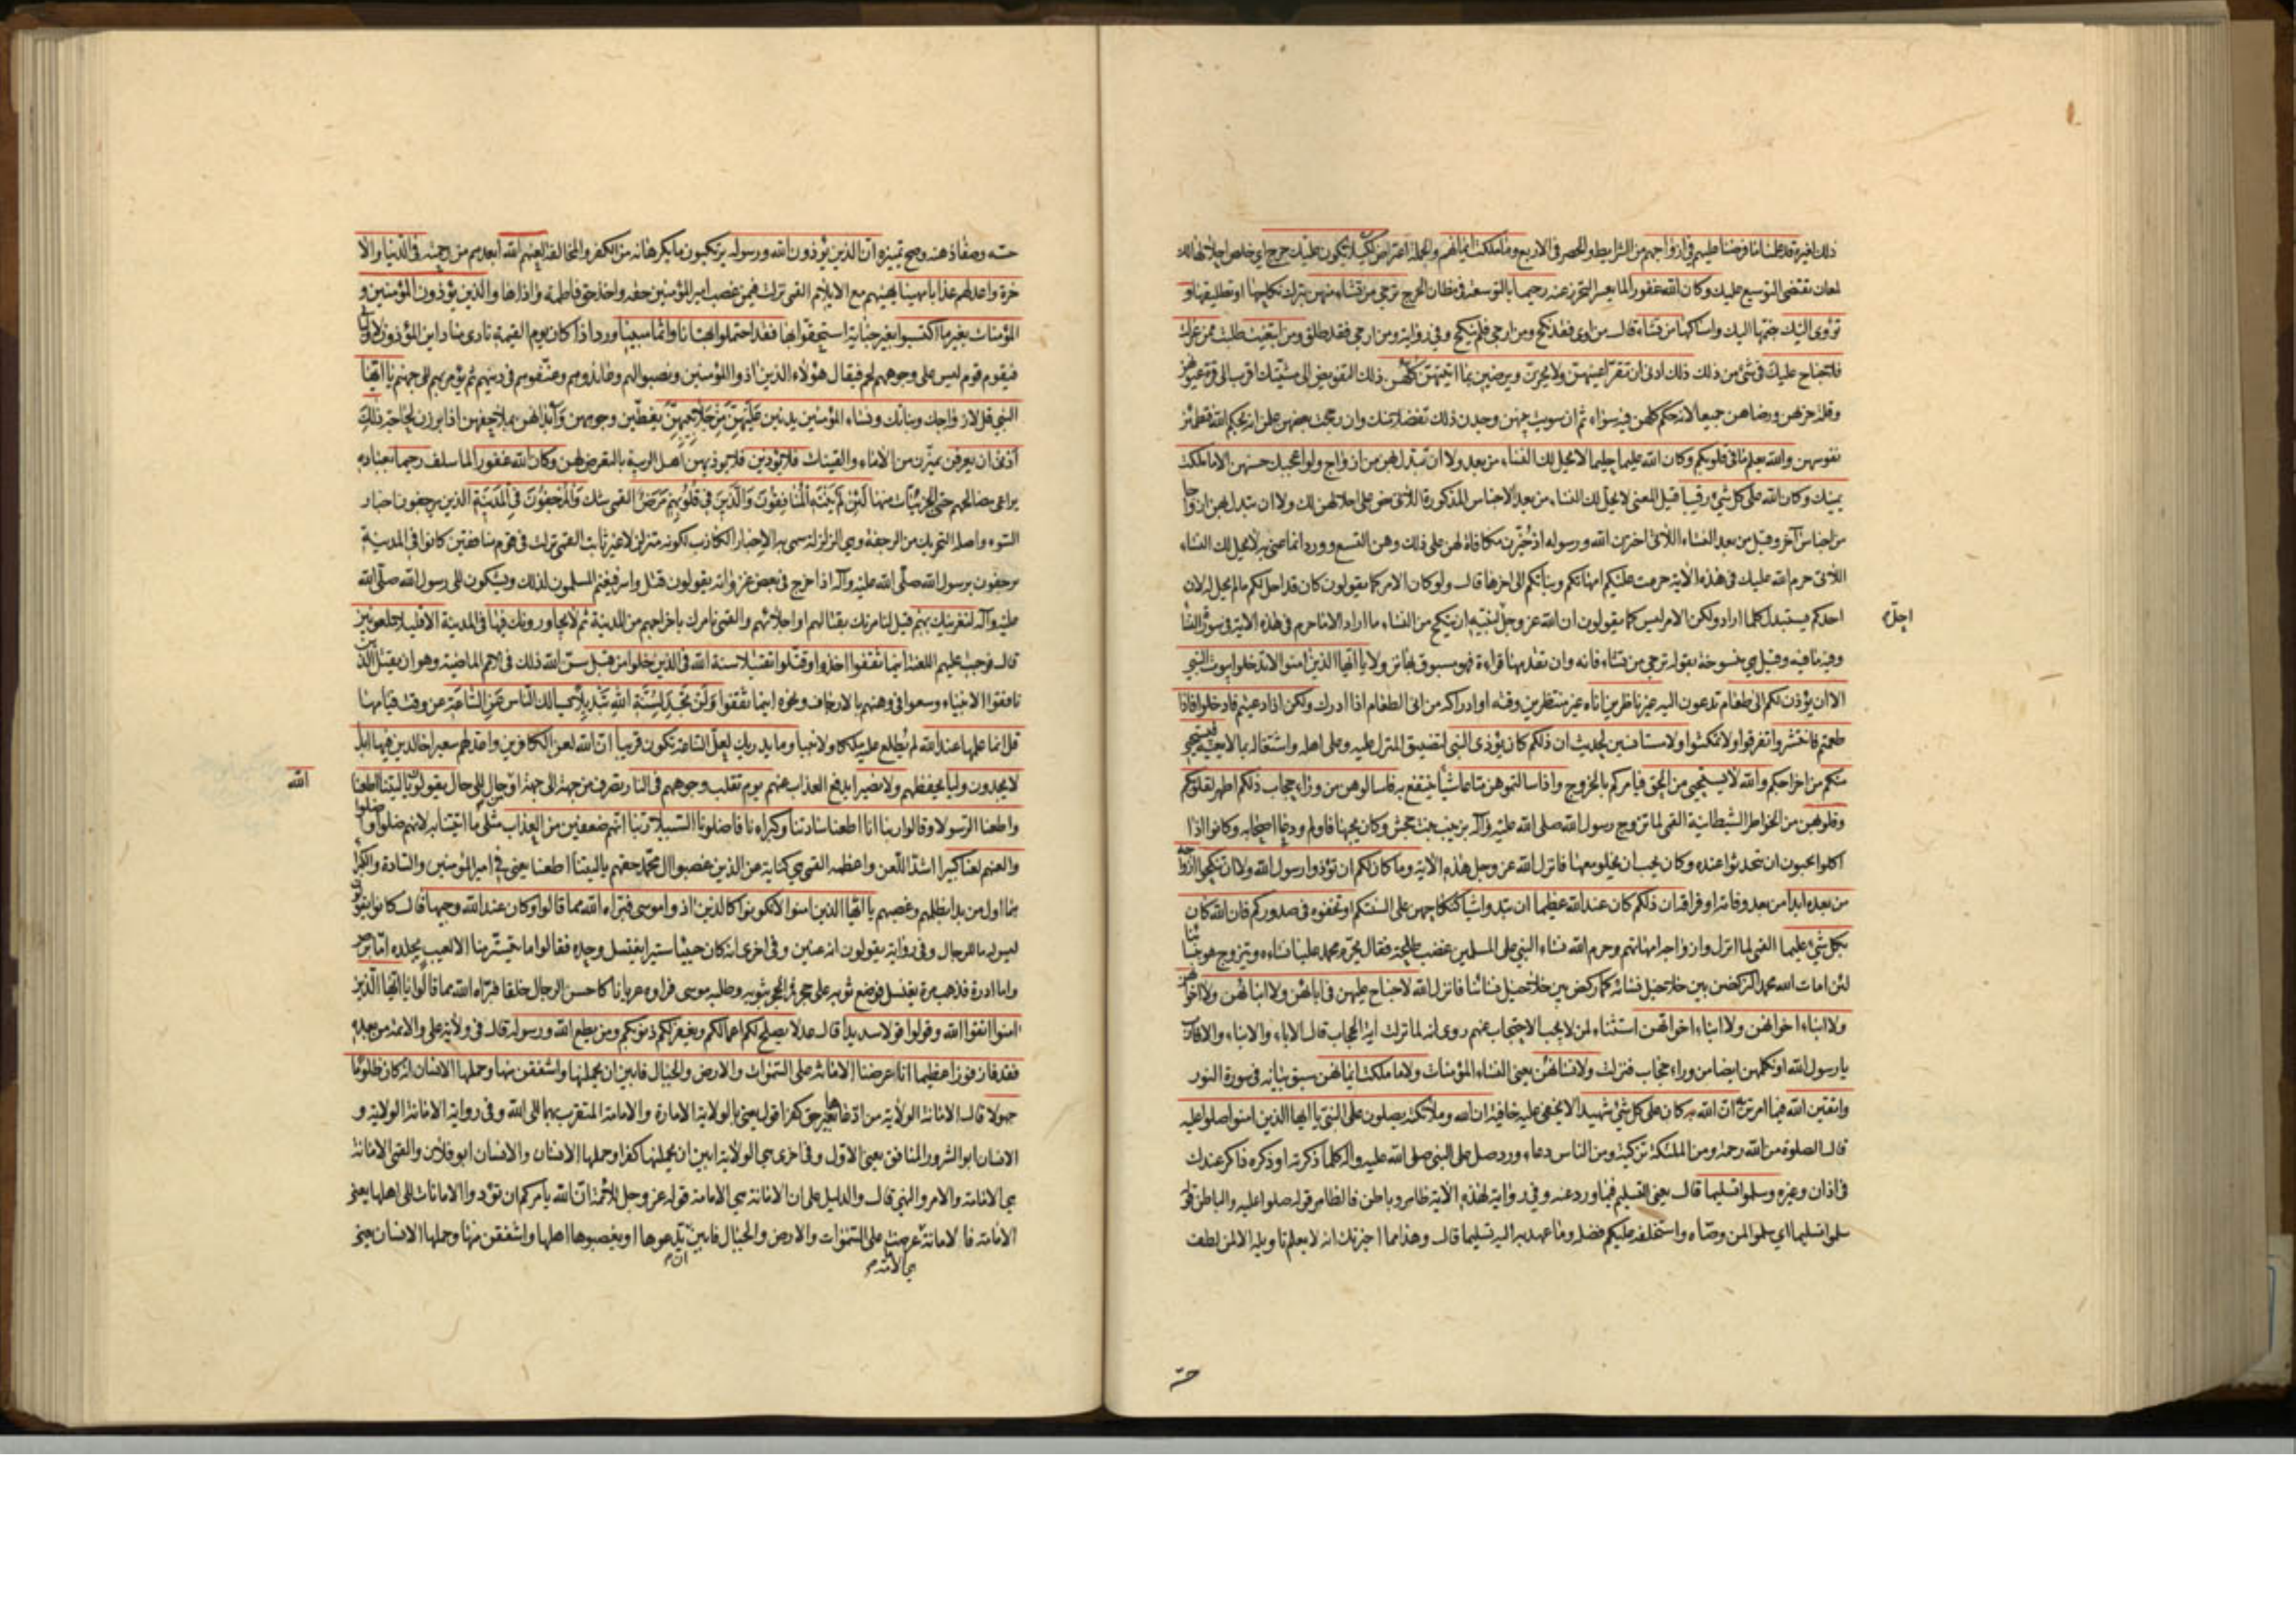 ذلك لغيره قد علمنا ما فرضنا عليهم في ازواجهم من الشرايط والحصر في الاربع وما ملكت ايمانهم والجملة اعتراض لكيلا يكون عليك حرج اي خلص احلالها لك
لمعان تقتضى التوسيع عليك وكان الله غفورا لما يعسر التحرز عنه رحيما بالتوسعة في مظان الحرج ترجي من تشاء منهن بترك نكاحها او تطليقها و
تؤوى اليك ضمها اليك وامساكها من تشاء قال من اوى فقد نكح ومن ارجى فلم ينكح وفي رواية ومن ارجى فقد طلق ومن ابتغيت طلبت ممن عزلت
فلا جناح عليك في شئ من ذلك ذلك ادنى ان تقر اعينهن ولا يحزن ويرضين بما اتيتهن كلهن ذلك التفويض الى مشيتك اقرب الى قرة عيونهن
وقلة حزنهن ورضاهن جميعا لان حكم كلهن فيه سواء ثم ان سويت بينهن وجدن ذلك تفضلا منك وان رجحت بعضهن علمن انه بحكم الله فتطمئن
نفوسهن والله يعلم ما في قلوبكم وكان الله عليما حليما لا يحل لك النساء من بعد ولا ان تبدل بهن من ازواج ولو اعجبك حسنهن الا ما ملكت
يمينك وكان الله على كل شئ رقيبا قيل المعنى لا يحل لك النساء من بعد الاجناس المذكورة اللاتى نص على احلالهن لك ولا ان تبدل بهن ازواجا
من اجناس آخر وقيل من بعد النساء اللاتى اخترن الله ورسوله اذ خيرن مكافاة لهن على ذلك وهن التسع وورد انما عنى به لا يحل لك النساء
اللاتى حرم الله عليك في هذه الاية حرمت عليكم امهاتكم وبناتكم الى اخرها قال ولو كان الامر كما يقولون كان قد احل لكم ما لم يحل له لان
احدكم يستبدل كلما اراد ولكن الامر ليس كما يقولون ان الله عز وجل لنبيه ان ينكح من النساء ما اراد الا ما حرم في هذه الاية في سورة النسا
احلّ
وفيه ما فيه وقيل هي منسوخة بقوله ترجي من تشاء فانه وان تقدمها قراءة فهو مسبوق بها نزولا يا ايها الذين امنوا لا تدخلوا بيوت النبي
الا ان يؤذن لكم الى طعام تدعون اليه غير ناظرين اناه غير منتظرين وقته او ادراكه من انى الطعام اذا ادرك ولكن اذا دعيتم فادخلوا فاذا
طعمتم فانتشروا تفرقوا ولا تمكثوا ولا مستانسين لحديث ان ذلكم كان يؤذى النبي لتضييق المنزل عليه وعلى اهله واشتغاله بما لا يعنيه فيستحيي
منكم من اخراجكم والله لا يستحيى من الحق فيامركم بالخروج واذا سالتموهن متاعا شيئا ينتفع به فاسالوهن من وراء حجاب ذلكم اطهر لقلوبكم
وقلوبهن من الخواطر الشيطانية القمى لما تزوج رسول الله صلى الله عليه وآله بزينب بنت جحش وكان يحبها فاولم ودعا اصحابه وكانوا اذا
اكلوا يحبون ان يتحدثوا عنده وكان يحب ان يخلو معها فانزل الله عز وجل هذه الاية وما كان لكم ان تؤذوا رسول الله ولا ان تنكحوا ازواجه
من بعده ابدا من بعد وفاته او فراقه ان ذلكم كان عند الله عظيما ان تبدوا شيئا كنكاحهن على السنتكم او تخفوه في صدوركم فان الله كان
بكل شئ عليما القمى لما انزل وازواجه امهاتهم وحرم الله نساء النبي على المسلمين غضب طلحة فقال يحرم محمد علينا نساءه ويتزوج هو نسائنا
لئن امات الله محمدا لنركضن بين خلاخيل نسائه كما ركض بين خلاخيل نسائنا فانزل الله لا جناح عليهن في ابائهن ولا ابنائهن ولا اخوانهن
ولا ابناء اخوانهن ولا ابناء اخواتهن استثناء لمن لا يجب الاحتجاب عنهم روى انه لما نزلت اية الحجاب قال الاباء والابناء والاقارب
يا رسول الله او نكلمهن ايضا من وراء حجاب فنزلت ولا نسائهن يعنى النساء المؤمنات ولا ما ملكت ايمانهن سبق بيانه في سورة النور
واتقين الله فيما امرتن به ان الله كان على كل شئ شهيدا لا يخفى عليه خافية ان الله وملائكته يصلون على النبي يا ايها الذين امنوا صلوا عليه
قال الصلوة من الله رحمة ومن الملئكة تزكية ومن الناس دعاء وورد صل على النبي صلى الله عليه واله كلما ذكرته او ذكره ذاكر عندك
في اذان وغيره وسلموا تسليما قال يعنى التسليم فيما ورد عنه وفي رواية لهذه الاية ظاهر وباطن فالظاهر قوله صلوا عليه والباطن قوله
سلموا تسليما اي سلموا لمن وصاه واستخلفه عليكم فضله وما عهد به اليه تسليما قال وهذا مما اخبرتك انه لا يعلم تاويله الا من لطف
حسّه
حسّه وصفا ذهنه وصح تميزه ان الذين يؤذون الله ورسوله يرتكبون ما يكرهانه من الكفر والمخالفة لعنهم الله ابعدهم من رحمته في الدنيا والآ
خرة واعد لهم عذابا مهينا يهينهم مع الايلام القمى نزلت فيمن غصب امير المؤمنين حقه واخذ حق فاطمة واذاها والذين يؤذون المؤمنين و
المؤمنات بغير ما اكتسبوا بغير جناية استحقوا بها فقد احتملوا بهتانا واثما مبينا ورد اذا كان يوم القيمة نادى مناد اين المؤذون لاوليائى
فيقوم قوم ليس على وجوههم لحم فيقال هؤلاء الذين اذوا المؤمنين ونصبوا لهم وعاندوهم وعنفوهم في دينهم ثم يؤمر بهم الى جهنم يا ايها
النبي قل لازواجك وبناتك ونساء المؤمنين يدنين عليهن من جلابيبهن يغطين وجوههن وابدانهن بملاحفهن اذا برزن لحاجة ذلك
ادنى ان يعرفن يميزن من الاماء والقينات فلا يؤذين فلا يؤذيهن اهل الريبة بالتعرض لهن وكان الله غفورا لما سلف رحيما بعباده
يراعى مصالحهم حتى الجزئيات منها لئن لم ينته المنافقون والذين في قلوبهم مرض القمى شك والمرجفون في المدينة الذين يرجفون اخبار
السوء واصله التحريك من الرجفة وهي الزلزلة سمى به الاخبار الكاذب لكونه متزلزلا غير ثابت القمى نزلت في قوم منافقين كانوا في المدينة
يرجفون برسول الله صلى الله عليه وآله اذا خرج في بعض غزواته يقولون قتل واسر فيغتم المسلمون لذلك ويشكون الى رسول الله صلى الله
عليه وآله لنغرينك بهم قيل لنامرنك بقتالهم او اجلائهم والقمى نامرك باخراجهم من المدينة ثم لا يجاورونك فيها في المدينة الا قليلا ملعونين
قال فوجبت عليهم اللعنة اينما ثقفوا اخذوا وقتلوا تقتيلا سنة الله في الذين خلوا من قبل سن الله ذلك في الامم الماضية وهو ان يقتل الذين
نافقوا الانبياء وسعوا في وهنهم بالارجاف ونحوه اينما ثقفوا ولن تجد لسنة الله تبديلا يسالك الناس عن الساعة عن وقت قيامها
قل انما علمها عند الله لم يطلع عليه ملكا ولا نبيا وما يدريك لعل الساعة تكون قريبا ان الله لعن الكافرين واعد لهم سعيرا خالدين فيها ابدا
لا يجدون وليا يحفظهم ولا نصيرا يدفع العذاب عنهم يوم تقلب وجوههم في النار يصرف من جهة الى جهة او حال الى حال يقولون يا ليتنا اطعنا
الله
واطعنا الرسولا وقالوا ربنا انا اطعنا سادتنا وكبراءنا فاضلونا السبيلا ربنا اتهم ضعفين من العذاب مثلى ما اتيتنا به لانهم ضلوا واضلوا
والعنهم لعنا كبيرا اشد اللعن واعظمه القمى هي كناية عن الذين غصبوا ال محمد حقهم يا ليتنا اطعنا يعنى في امير المؤمنين والسادة والكبراء
هما اول من بدا بظلمهم وغصبهم يا ايها الذين امنوا لا تكونوا كالذين اذوا موسى فبراه الله مما قالوا وكان عند الله وجيها قال كانوا يقولون
ليس له ما للرجال وفي رواية يقولون انه عنين وفي اخرى انه كان حييا ستيرا يغتسل وحده فقالوا ما يتستر منا الا لعيب بجلده اما برص
واما ادرة فذهب مرة يغتسل فوضع ثوبه على حجر فمر الحجر بثوبه وطلبه موسى فراوه عريانا كاحسن الرجال خلقا فبراه الله مما قالوا يا ايها الذين
امنوا اتقوا الله وقولوا قولا سديدا قال عدلا يصلح لكم اعمالكم ويغفر لكم ذنوبكم ومن يطع الله ورسوله قال في ولاية علي والائمة من بعده
فقد فاز فوزا عظيما انا عرضنا الامانة على السموات والارض والجبال فابين ان يحملنها واشفقن منها وحملها الانسان انه كان ظلوما
جهولا قال الامانة الولاية من ادعاها بغير حق كفر اقول يعنى بالولاية الامارة والامامة المتقرب بها الى الله وفي رواية الامانة الولاية و
الانسان ابو الشرور المنافق يعنى الاول وفي اخرى هي الولاية ابين ان يحملنها كفرا وحملها الانسان والانسان ابو فلان والقمى الامانة
هي الامامة والامر والنهي قال والدليل على ان الامانة هي الامامة قوله عز وجل للائمة ان الله يأمركم ان تؤدوا الامانات الى اهلها يعنى
الامامة فالامانة عرضت على السموات والارض والجبال فابين يدعوها او يغصبوها اهلها واشفقن منها وحملها الانسان يعنى
هي الامامة
ان